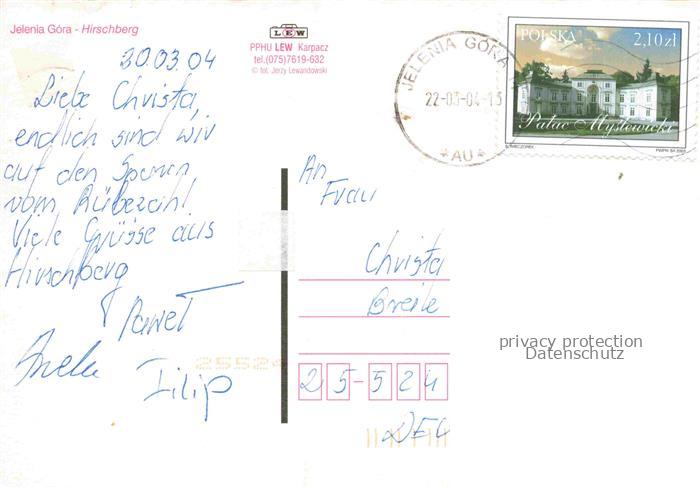 Jelenia Góra - Hirschberg
LEW
PPHU LEW Karpacz
tel.(075)7619-632
© fot. Jerzy Lewandowski
20.03.04
Liebe Christa,
endlich sind wir
auf den Spuren
vom Rübezahl!
Viele Grüsse aus
Hirschberg
Paweł
Filip
25524
JELENIA GÓRA
22-03-04-15
*AU*
POLSKA 2,10zł
Pałac Myślewicki
An
Frau
Christa
Breile
25-524
privacy protection
Datenschutz